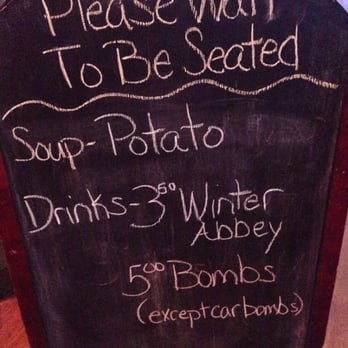 Please Wait
To Be Seated
Soup-Potato
Drinks-3.50 Winter
Abbey
5.00 Bombs
(except car bombs)